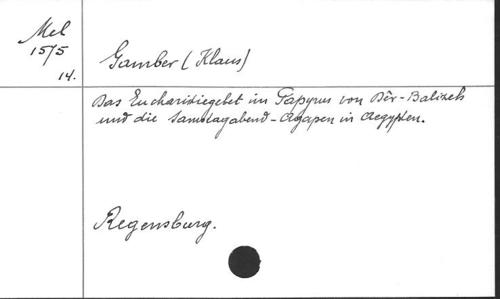 Mel
1575
14.
Gamber (Klaus)
Das Eucharistiegebet im Papyrus von Dêr-Balizeh
und die Samstagabend-Agapen in Aegypten.
Regensburg.